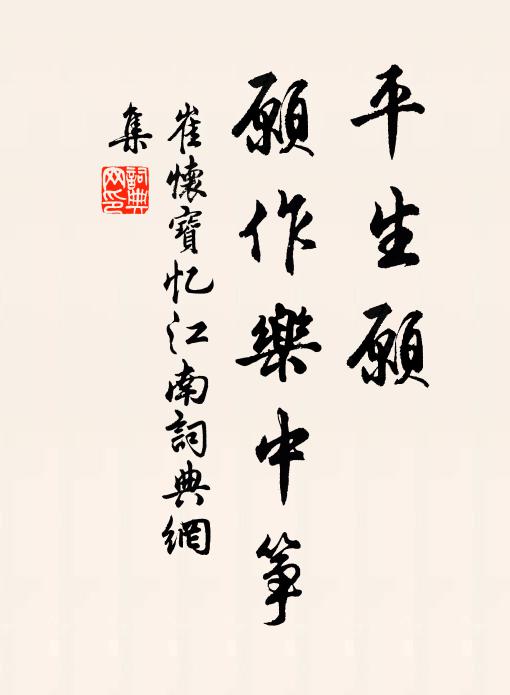 平生願
願作樂中箏
崔懷寶忆江南詞典網
集
詞典
网印